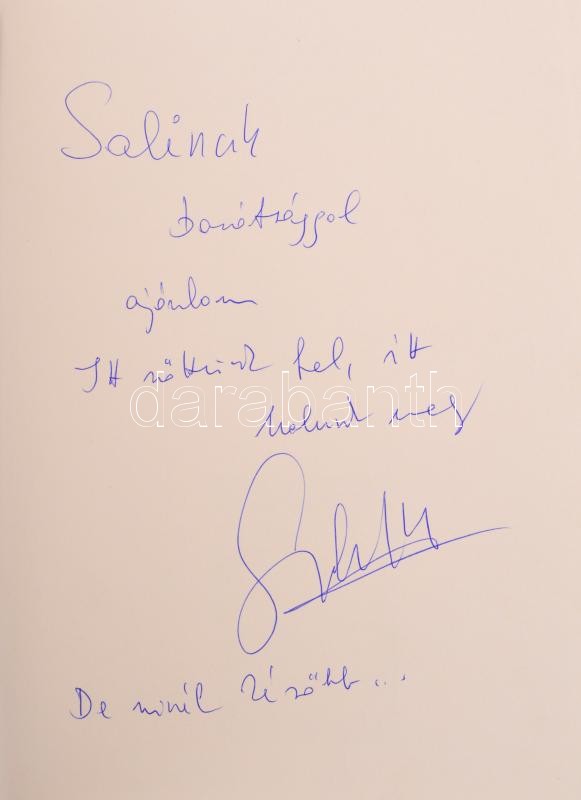 Salinak
barátsággal
ajánlom
Itt nőttünk fel, itt
darabanth
halunk meg
De minél később...